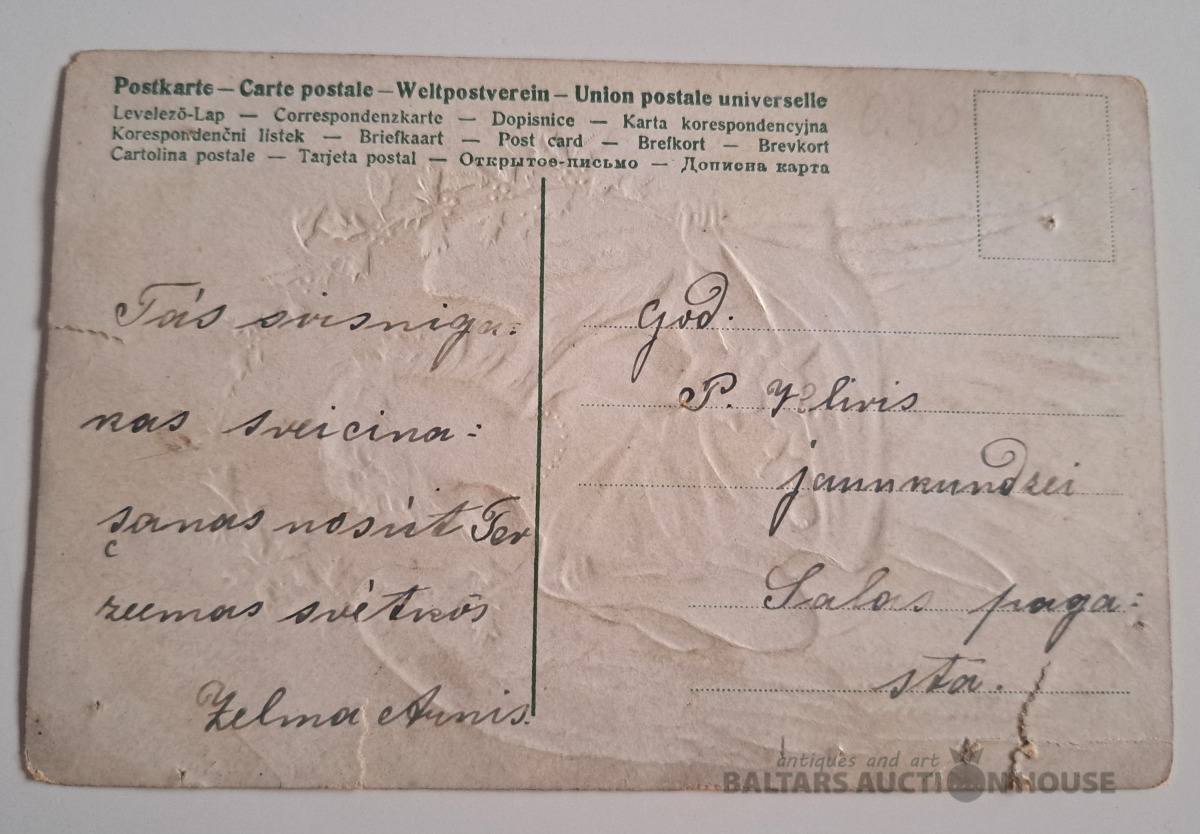 Postkarte – Carte postale – Weltpostverein – Union postale universelle
Levelező-Lap — Correspondenzkarte — Dopisnice — Karta korespondencyjna
Korespondenční lístek — Briefkaart — Post card — Brefkort — Brevkort
Cartolina postale — Tarjeta postal — Открытое-письмо — Дописна карта
Tās sirsniga:
nas sveicina:
šanas nosūt Tev
zeemas svētkōs
Zelma Arnis.
God.
P.
jaunkundzei
Salas paga:
sta.
antiques and art
BALTARS AUCTION HOUSE